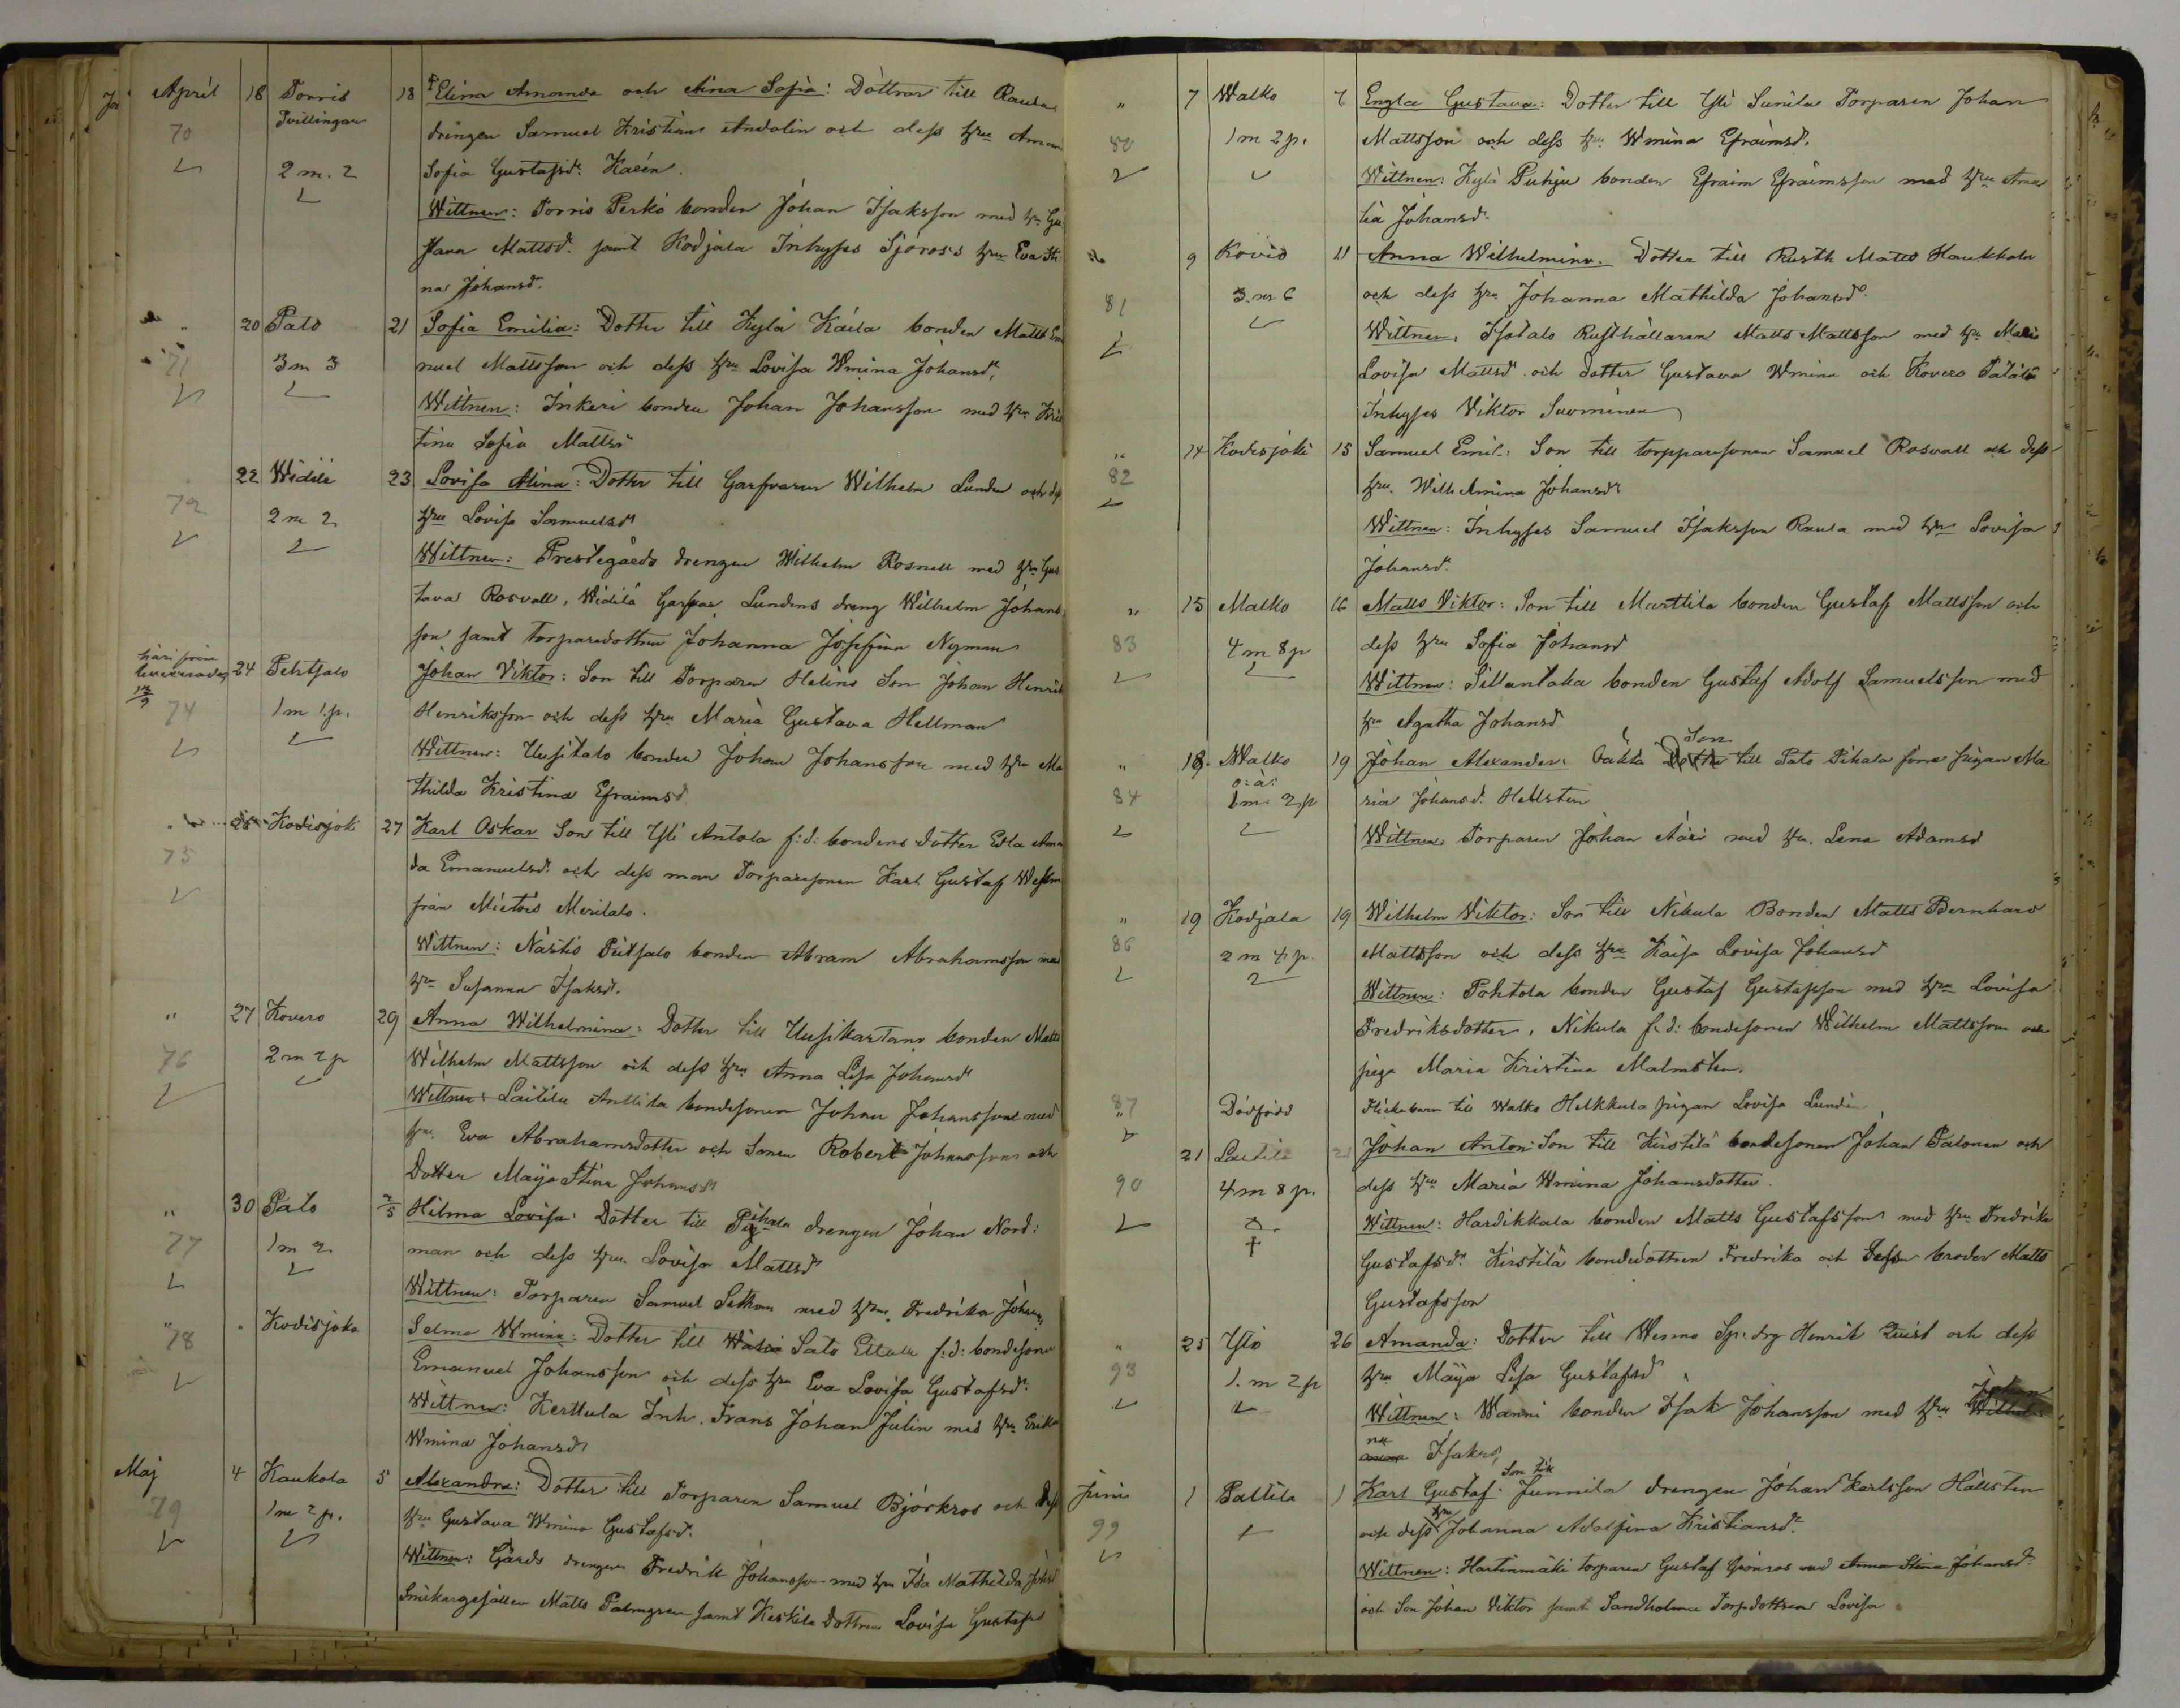 April 18 Torris 18 Elina Amanda och Aina Sofia: Döttrar till Rauta
70 Tvillingar drängen Samuel Kristian Andelin och dess hru Aman
2 m. 2 Sofia Gustafsd. Kalén.
Wittnen: Torris Perko bonden Johan Isaksson med hru Gu
stava Mattsd. samt Kodjala Inhyses Sjöross hru Eva Sti
na Johansd.
" 20 Palo 21 Sofia Emilia: Dotter till Kylä Kaila bonden Matts Em
71 3 m 3 nuel Mattsson och dess hru Lovisa Wmina Johansdr.
Wittnen: Inkeri bonden Johan Johansson med hru Kris
tina Sofia Mattsdr
22 Widilä 23 Lovisa Alina: Dotter till Garfvaren Wilhelm Lundin och dess
72 2 m 2 hru Lovisa Samuelsdr
Wittnen: Prestegårds drengen Wilhelm Rosnell med hru Gus
tava Rosvall, Widilä Garfvar Lundens dreng Wilhelm Johans
son samt torparedottren Johanna Josefina Nyman
24 Pehtsalo Johan Viktor: Son till Torparen Helins Son Johan Henrik
74 1 m 1 p. Henriksson och dess hru Maria Gustava Hellman
Wittnen: Uusitalo bonden Johan Johansson med hru Ma
thilda Kristina Efraimsd
Kodisjoki 27 Karl Oskar Son till Yli Antola f:d: bondens dotter Edla Aman
75 da Emanuelsd. och dess man Torparesonen Karl Gustaf
från Mietois Meritalo.
Wittnen: Nästis Peitsalo bonden Abram Abrahamsson med
hru Susanna Isaksd.
" 27 Kovero 29 Anna Wilhelmina: Dotter till Uusikartano bonden Matts
76 2 m 2 p Wilhelm Mattsson och dess hru Anna Lisa Johansdr
Wittnen: Laitila Anttila bondesonen Johan Johansson med
hru. Eva Abrahamsdotter och Sonen Robert Johansson och
Dotter Maija Stina Johansdr
" 30 Palo 2/5 Hilma Lovisa: Dotter till Pihala drengen Johan Nord:
77 1 m 2 man och dess hru. Lovisa Mattsdr
Wittnen: Torparen Samuel med hru. Fredrika Johans
" Kodisjoki Selma Wmina: Dotter till Salo Ettala f:d: bondesonen
78 Emanuel Johansson och dess hru Eva Lovisa Gustafsdr.
Wittnen: Kerttula Inh. Frans Johan Julin med hru Erika
Wmina Johansdr
Maj 4 Kaukola 5 Alexandra: Dotter till Torparen Samuel Björkros och dess
79 1 m 2 p. hru Gustava Wmina Gustafsd.
Wittnen: Gårds drengen Fredrik Johansson med hru Ida Mathilda Johsd
Matts Palmgren samt Keskila Dottren Lovisa Gustafsd
" 7 Walko 7 Engla Gustava: Dotter till Yli Sunila Torparen Johan
80 1 m 2 p. Mattsson och dess hru Wmina Efraimsd.
Wittnen: Kylä Puhju bonden Efraim Efraimsson med hru Ama
lia Johansd.
9 Kovio 11 Anna Wilhelmina. Dotter till Rusth Matts Haukkala
81 3 m 6 och dess hru Johanna Mathilda Johansdr
Wittnen: Isotalo Rusthållaren Matts Mattsson med hru Maria
Lovisa Mattsdr och dotter Gustava Wmina och Kovero
Inhyses Viktor Suominen
" 14 Kodisjoki 15 Samuel Emil: Son till torpparesonen Samuel Rosvall och dess
82 hru. Wilhelmina Johansdr
Wittnen: Inhyses Samuel Isaksson Rauta med hru Lovisa
Johansd.
" 15 Malko 16 Matts Viktor: Son till Marttila bonden Gustaf Mattsson och
83 4 m 8 p dess hru Sofia Johansd
Wittnen: Sillantaka bonden Gustaf Adolf Samuelsson med
hru Agatha Johansd
" 18. Walko 19 Johan Alexander: Oäkta Son till Palo Pihala förra pigan Ma
84 o: ä: 1 m 2 p ria Johansd. Hellsten
Wittnen: Torparen Johan Ääri med hru. Lena Adamsd
" 19 Kodjala 19 Wilhelm Viktor: Son till Nikula Bonden Matts Bernhard
86 2 m 4 p. Mattsson och dess hru Kaisa Lovisa Johansd
Wittnen: Pohtola bonden Gustaf Gustafsson med hru Lovisa
Fredriksdotter, Nikula f:d: bondesonen Wilhelm Mattsson och
piga Maria Kristina Malmsten.
87 Dödfödd Flickebarn till Walko Heikkula pigan Lovisa Lundin
21 Laitila 21 Johan Anton: Son till Kirstilä bondesonen Johan Salonen och
90 4 m 8 p. dess hru Maria Wmina Johansdotter.
† Wittnen: Hardikkala bonden Matts Gustafsson med hru Fredrika
Gustafsdr. Kirstilä bondedottren Fredrika och Dess broder Matts
Gustafsson
" 25 Ylio 26 Amanda: Dotter till Wermo Sp: drg Henrik Quist och dess
93 1. m 2 p hru Maija Lisa Gustafsd
Wittnen: Wanni bonden Isak Johansson med hru Johan
na Isaksd
Juni 1 Paltila 1 Karl Gustaf: Son till Junnila drengen Johan Karlsson Hällsten
99 och dess hru Johanna Adolfina Kristiansdr.
Wittnen: Hartinmäki torparen Gustaf Grönros med Anna Stina Johansdr.
och Son Johan Viktor samt Sandholma Torp. dottren Lovisa